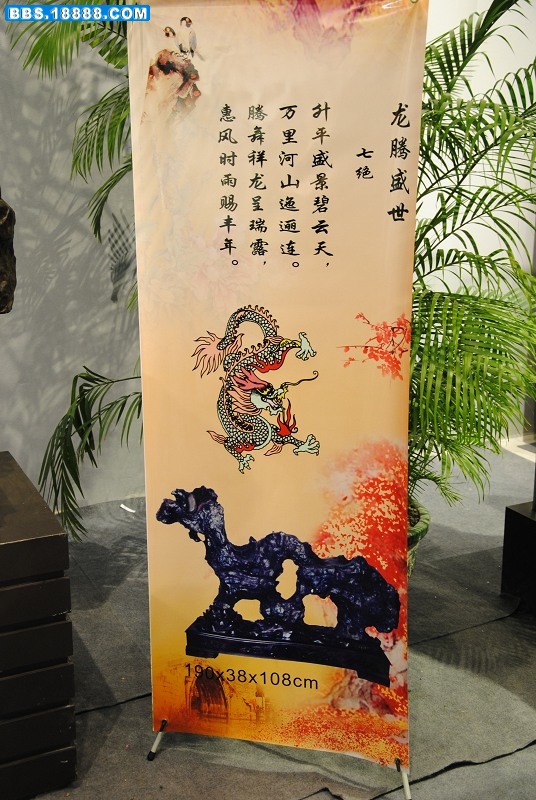 BBS.18888.COM
龙腾盛世
七绝
升平盛景碧云天，
万里河山迤逦连。
腾舞祥龙呈瑞露，
惠风时雨赐丰年。
190x38x108cm